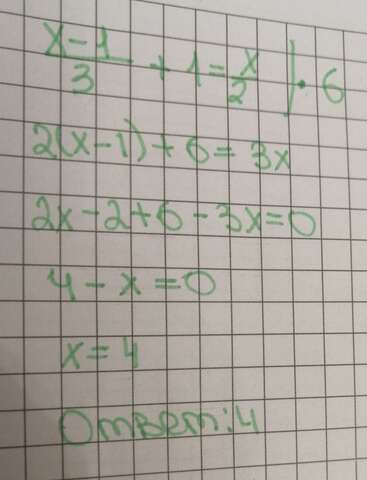 x-1/3 + 1 = x/2 | · 6
2(x-1)+6 = 3x
2x-2+6-3x=0
4-x=0
x=4
Ответ: 4